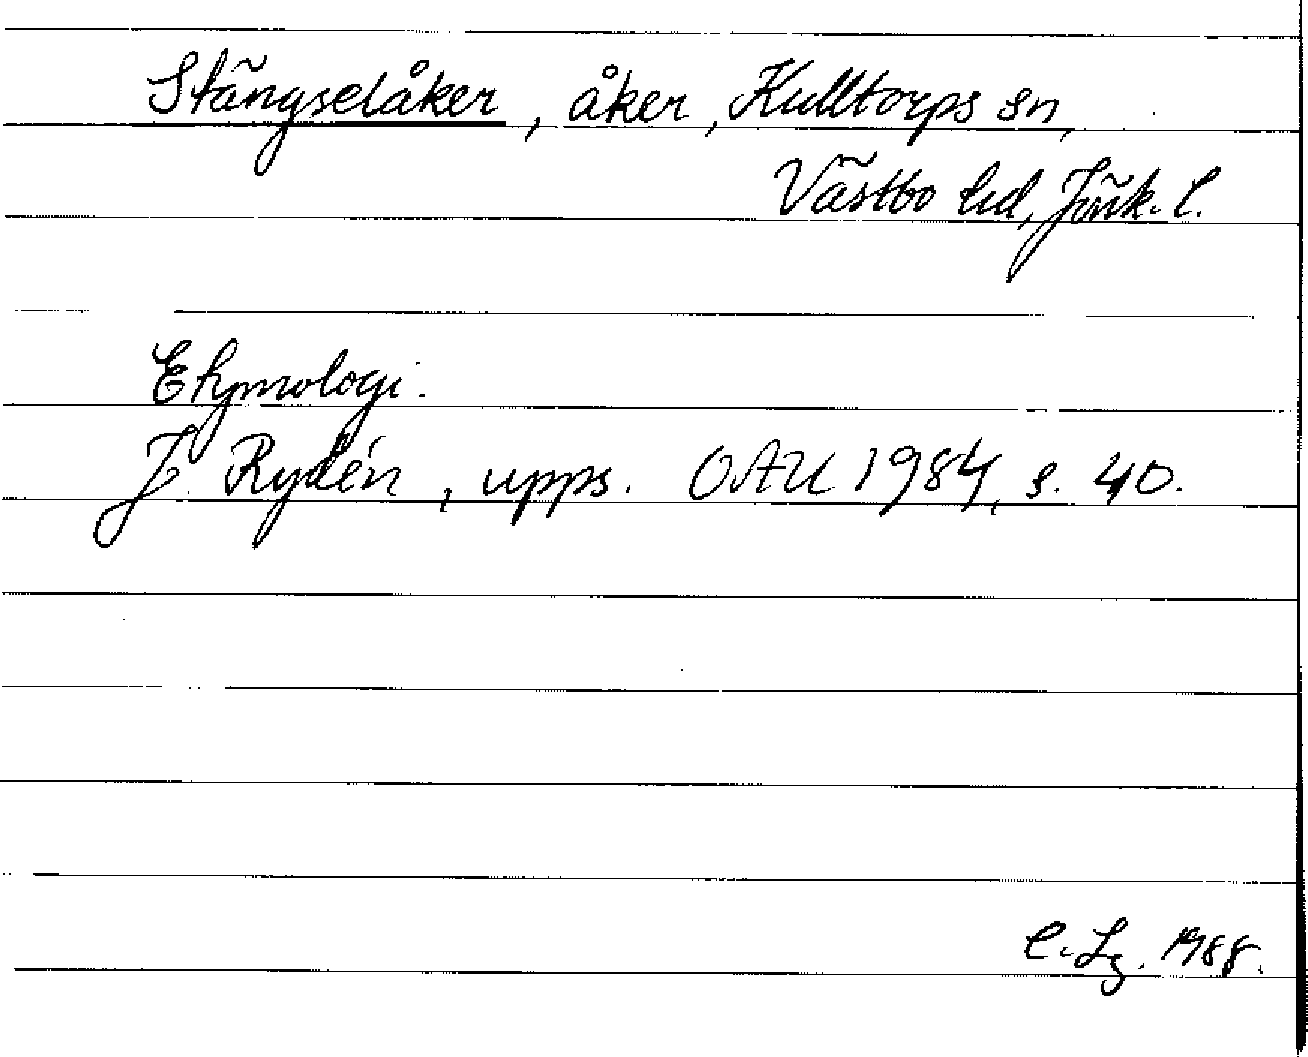 Stängselåker, åker, Kulltorps sn,
Västbo hd, Jönk. l.
Etymologi.
J Rydén, upps. OAU 1984, s. 40.
C. Lg. 1988.